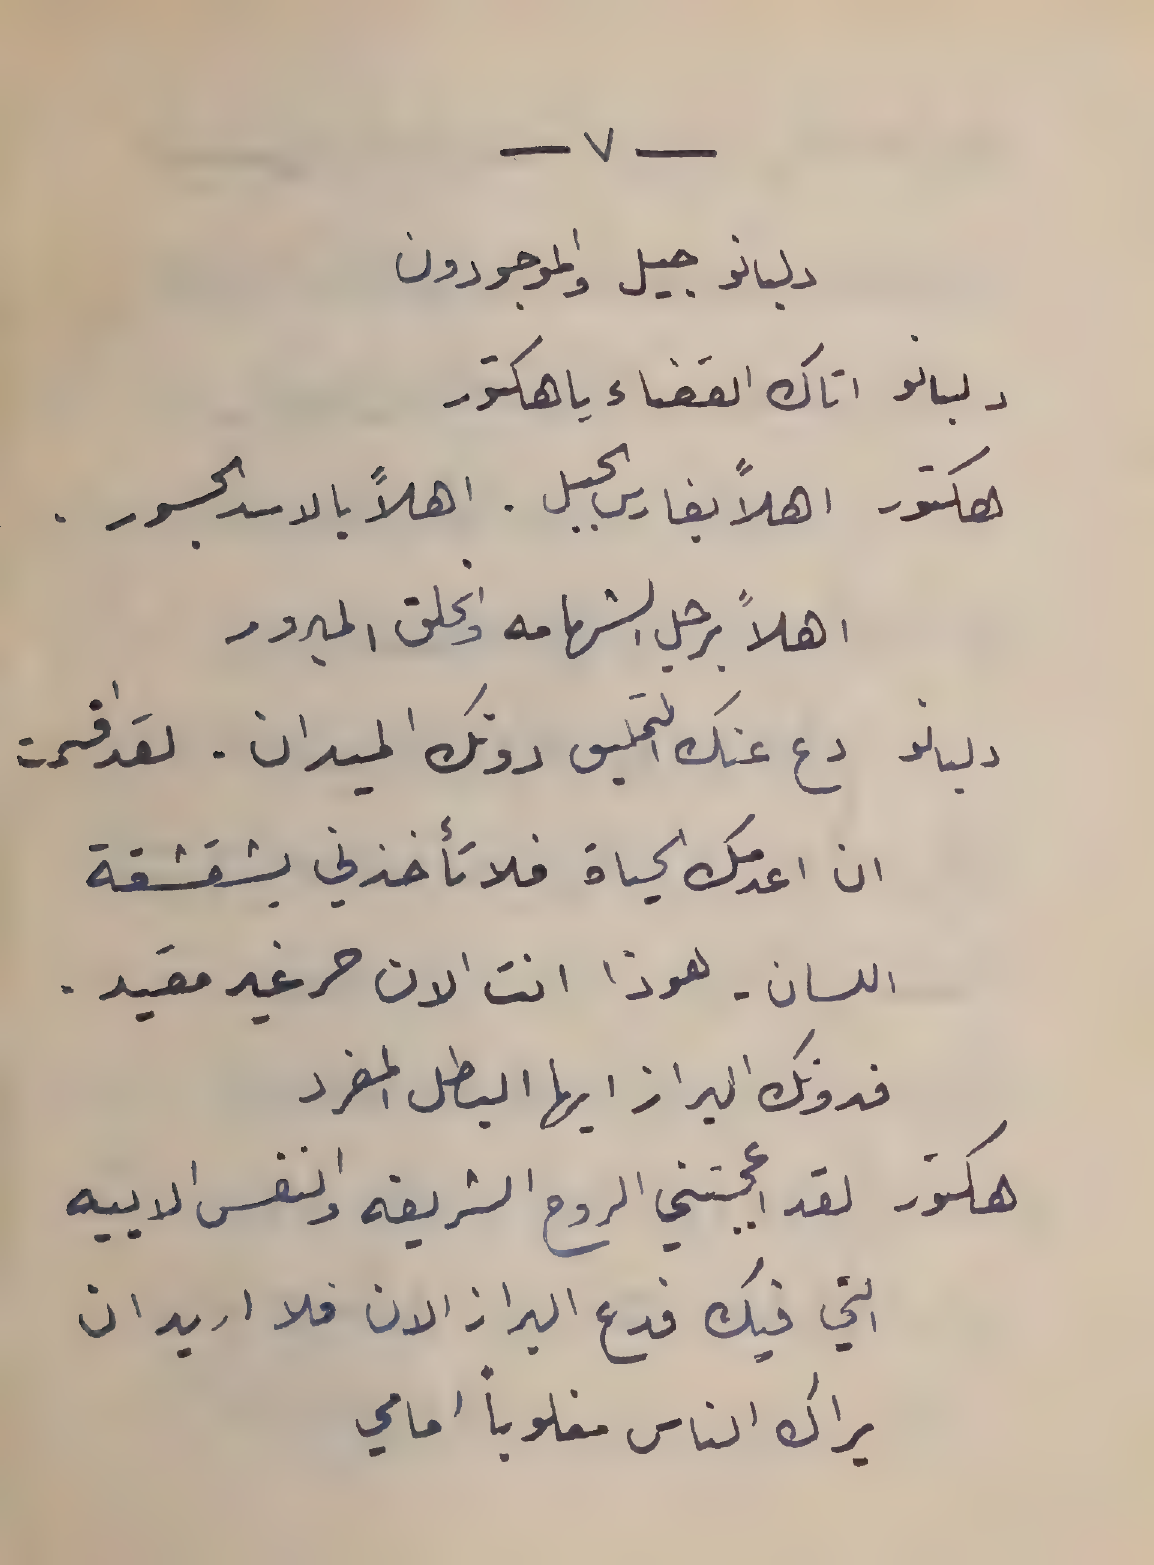 — ٧ —
دلبانو جيل والموجودون
دلبانو اتاك القضاء يا هكتور
هكتور اهلاً بفارس الجيل . اهلاً بالاسد الجسور .
اهلاً برجل الشهامه والخلق المبرور
دلبانو دع عنك التمليق دونك الميدان . لقد اقسمت
ان اعدمك الحياة فلا تأخذني بشقشقة
اللسان - هوذا انت الان حر غير مقيد .
فدونك البراز ايها البطل المفرد
هكتور لقد اعجبتني الروح الشريفه والنفس الابيه
التي فيك فدع البراز الان فلا اريد ان
يراك الناس مغلوباً امامي